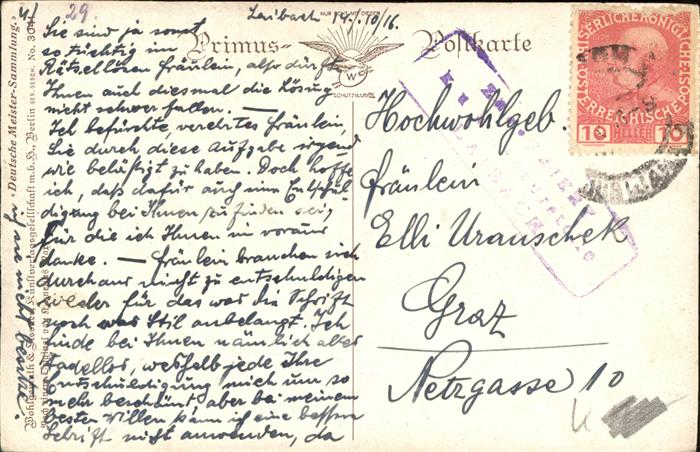 4)
29
Laibach 14./10/16.
NUR SCHUTZMARKE
Primus-Postkarte
W
SCHUTZMARKE
"Deutsche Meister-Sammlung."
Wohlgemuth & Kunstverlagsgesellschaft m. b. H., Berlin No. 304
Sie sind ja sonst
so tüchtig im
Rätsellösen Fräulein, also dürft
Ihnen auch diesmal die Lösung
nicht schwer fallen. —
Ich befürchte, verehrtes Fräulein,
Sie durch diese Aufgabe irgend
wie belästigt zu haben. Doch hoffe
ich, daß dafür auch eine Entschul-
digung bei Ihnen zu finden sei,
für die ich Ihnen im voraus
danke. — Fräulein brauchen sich
durchaus nicht zu entschuldigen
weder für das was die Schrift
noch was Stil anbelangt. Ich
finde bei Ihnen nämlich alles
tadellos, weshalb jede Ihre
Entschuldigung mich um so
mehr beschämt aber bei meinem
besten Willen kann ich eine bessere
Schrift nicht anwenden, da
ich sie nicht besitze.
KAISERLICHE KÖNIGLICHE
ÖSTERREICHISCHE POST
10 HELLER 10
LAIBACH
Hochwohlgeb.
Fräulein
Elli Urauschek
Graz
Netzgasse 10